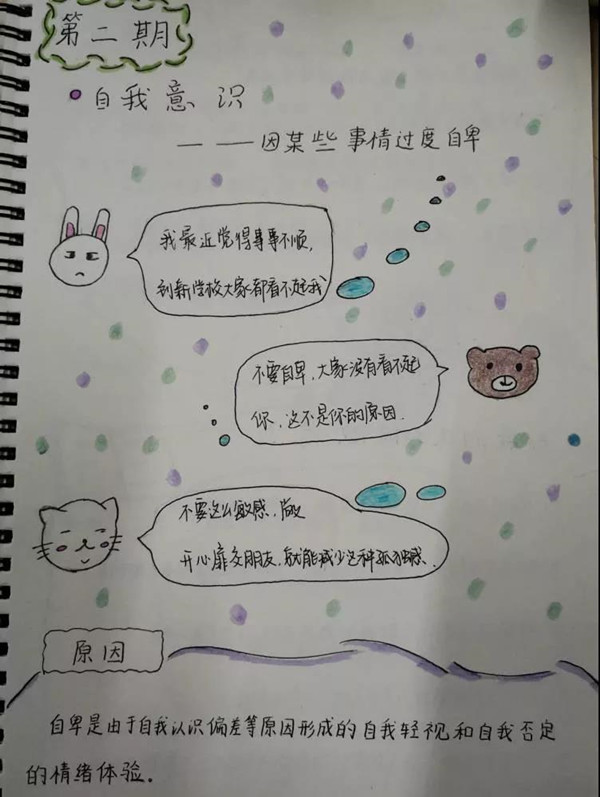 第二期
自我意识
——因某些事情过度自卑
我最近觉得事事不顺,
到新学校大家都看不起我
不要自卑,大家没有看不起
你,这不是你的原因.
不要这么敏感,放
开心扉交朋友,就能减少这种孤独感.
原因
自卑是由于自我认识偏差等原因形成的自我轻视和自我否定
的情绪体验.